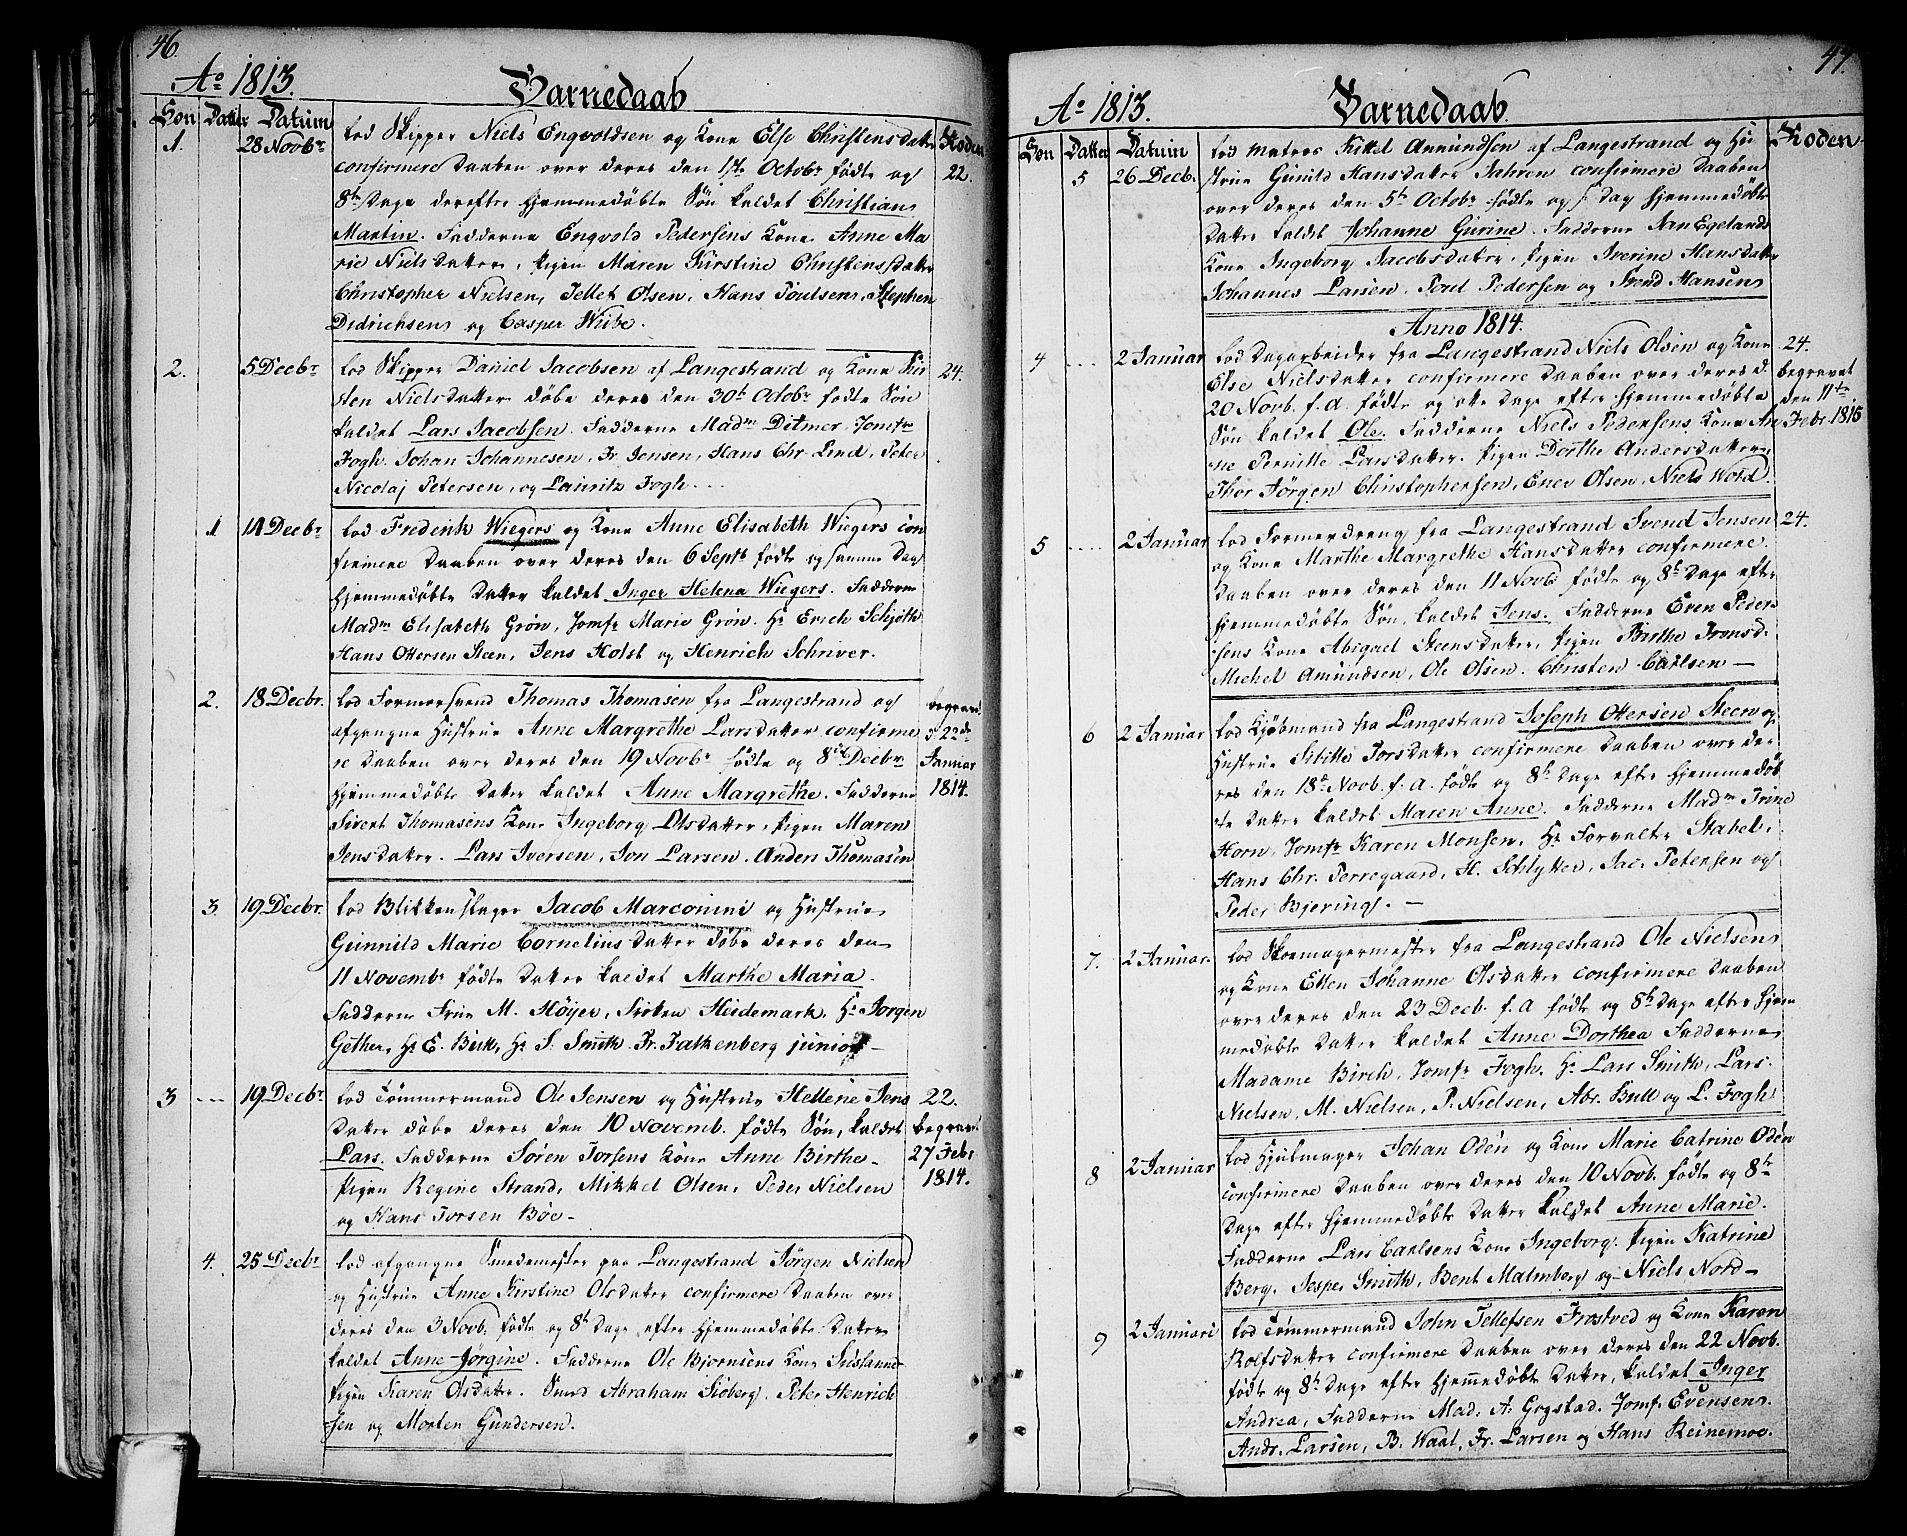 46.
Ao 1813.
Barnedaab
Søn Datter Datum Roden
1. 28 Novbr lod Skipper Niels Engvoldsen og Kone Else Christensdatter 22.
confirmere Daaben over deres den 1ste Octobr fødte og
8te Dage derefter hjemmedøbte Søn kaldet Christian
Martin. Fadderne Engvold Pedersens Kone Anne Ma
rie Nielsdatter, Pigen Maren Kirstine Christensdatter
Christopher Nielsen, Tellef Olsen, Hans Poulsen, Stephen
Didrichsen og Casper Wiibe.
2. 5 Decbr lod Skipper Daniel Jacobsen af Langestrand og Kone Kir 24.
sten Nielsdatter døbe deres den 30te Octobr fødte Søn
kaldet Lars Jacobsen. Fadderne Madm Ditmer, Jomfr
Fogh, Johan Johannesen, Fr Jensen, Hans Chr. Lind, Peter
Nicolaj Petersen, og Lauritz Fogh.
1 14 Decbr lod Frederik Wiegers og Kone Anne Elisabeth Wiegers con
firmere Daaben over deres den 6 Septb fødte og samme Dag
hjemmedøbte Datter kaldet Inger Helena Wiegers. Fadderne
Madm Elisabeth Grøn, Jomfr Marie Grøn. Hr Erich Schjøth
Hans Ottersen Steen, Jens Holst og Henrich Schriver.
2. 18 Decbr. lod Formersvend Thomas Thomasen fra Langestrand og begravet
afgangne Hustrue Anne Margrethe Larsdatter confirme d 22de
re Daaben over deres den 19 Novbr fødte og 8de Decbr Januar
hjemmedøbte Datter kaldet Anne Margrethe. Fadderne 1814.
Sivert Thomasens Kone Ingeborg Olsdatter, Pigen Maren
Jensdatter. Lars Iversen, Jon Larsen. Anders Thomasen
3. 19 Decbr. lod Blikkenslager Jacob Marconini og Hustrue
Gunnild Marie Corneliusdatter døbe deres den
11 Novembr fødte Datter kaldet Marthe Maria.
Fadderne Frue M. Höyer, Frøken Heidemark, Hr Jørgen
Gether, Hr E. Bick, Hr S. Smith. Fr. Falkenberg junior
3 19 Decbr. lod Tømmermand Ole Jensen og Hustrue Hellene Jens 22.
datter døbe deres den 10 Novemb. fødte Søn, kaldet begravet
Lars. Fadderne Søren Torsens Kone Anne Birthe 27 Febr
Pigen Regine Strand, Mikkel Olsen, Peder Nielsen 1814.
og Hans Torsen Bøe
4. 25 Decbr lod afgangne Smedemester paa Langestrand Jørgen Nielsen
og Hustrue Anne Kirstine Olsdatter confirmere Daaben over
deres den 3 Novb. fødte og 8te Dage efter hjemmedøbte Datter
kaldet Anne Jørgine. Fadderne Ole Bjørnsens Kone Susanne
Pigen Karen Olsdatter. Svend Abraham Sioberg. Peter Henrick
sen og Morten Gundersen.
47.
Ao 1813.
Barnedaab.
Søn Datter Datum Roden
5 26 Decb. lod Matros Kittel Anmundsen af Langestrand og Hu
strue Gunild Hansdatter Jahren confirmere Daaben
over deres den 5te Octobr fødte og s Dag hjemmedøbte
Datter kaldet Johanne Gurine. Fadderne Jan Egelands
Kone Ingeborg Jacobsdatter, Pigen Iverine Hansdatter
Johannes Larsen. Poul Pedersen og Svend Hansen
Anno 1814.
4 2 Januar lod Dagarbeider fra Langestrand Niels Olsen og Kone 24.
Else Nielsdatter confirmere Daaben over deres d. begravet
20 Novb. f. A. fødte og otte Dage efter hjemmedøbte den 11te
Søn kaldet Ole. Fadderne Niels Pedersens Kone An Febr. 1815
ne Pernille Larsdatter. Pigen Dorthe Andersdatter
Thor Jørgen Christophersen, Enev Olsen, Niels Wold.
5 2 Januar lod Formerdreng fra Langestrand Svend Jensen 24.
og Kone Marthe Margrethe Hansdatter confirmere
Daaben over deres den 11 Novb fødte og 8te Dage efter
hjemmedøbte Søn, kaldet Jens. Fadderne Even Peder
sens Kone Abigael Steensdatter, Pigen Birthe Tronsd.
Michel Amundsen, Ole Olsen. Christen Carlsen
6 2 Januar lod Kjøbmand fra Langestrand Joseph Ottersen Steen og
Hustrue Sitille Torsdatter confirmere Daaben over de
res den 18de Novb. f. A. fødte og 8te Dage efter hjemmedøb
te Datter kaldet Maren Anne. Fadderne Madm Trine
Horn, Jomfr Karen Monsen, Hr Forvalter Stabel,
Hans Chr. Perregaard, H. Schlytter, Jac. Petersen og
Peder Bjering.
7. 2 Januar. lod Skomagermester fra Langestrand Ole Nielsen
og Kone Ellen Johanne Olsdatter confirmere Daaben
over deres den 23 Decb. f. A fødte og 8te Dage efter hjem
medøbte Datter kaldet Anne Dorthea Fadderne
Madame Birch, Jomfr Fogh. Hr Lars Smith, Lars.
Nielsen, M. Nielsen, P. Nielsen, Abr. Bull og L. Fogh
8 2 Januar lod Hjulmager Johan Odén og Kone Marie Catrine Odén
confirmere Daaben over deres den 10 Novb. fødte og 8te
Dage efter hjemmedøbte Datter kaldet Anne Marie.
Fadderne Lars Carlsens Kone Ingeborg. Pigen Katrine
Berg. Jesper Smith, Bent Malmberg og Niels Nord
9 2 Januari lod Tømmermand John Tellefsen Frostved og Kone Karen
Rolfsdatter confirmere Daaben over deres den 22 Novb.
fødte og 8te Dage efter hjemmedøbte Datter, kaldet Inger
Andrea, Fadderne Mad. A: Gogstad. Jomf. Evensen.
Andr. Larsen, B. Waal, Fr. Larsen og Hans Reinemoe.